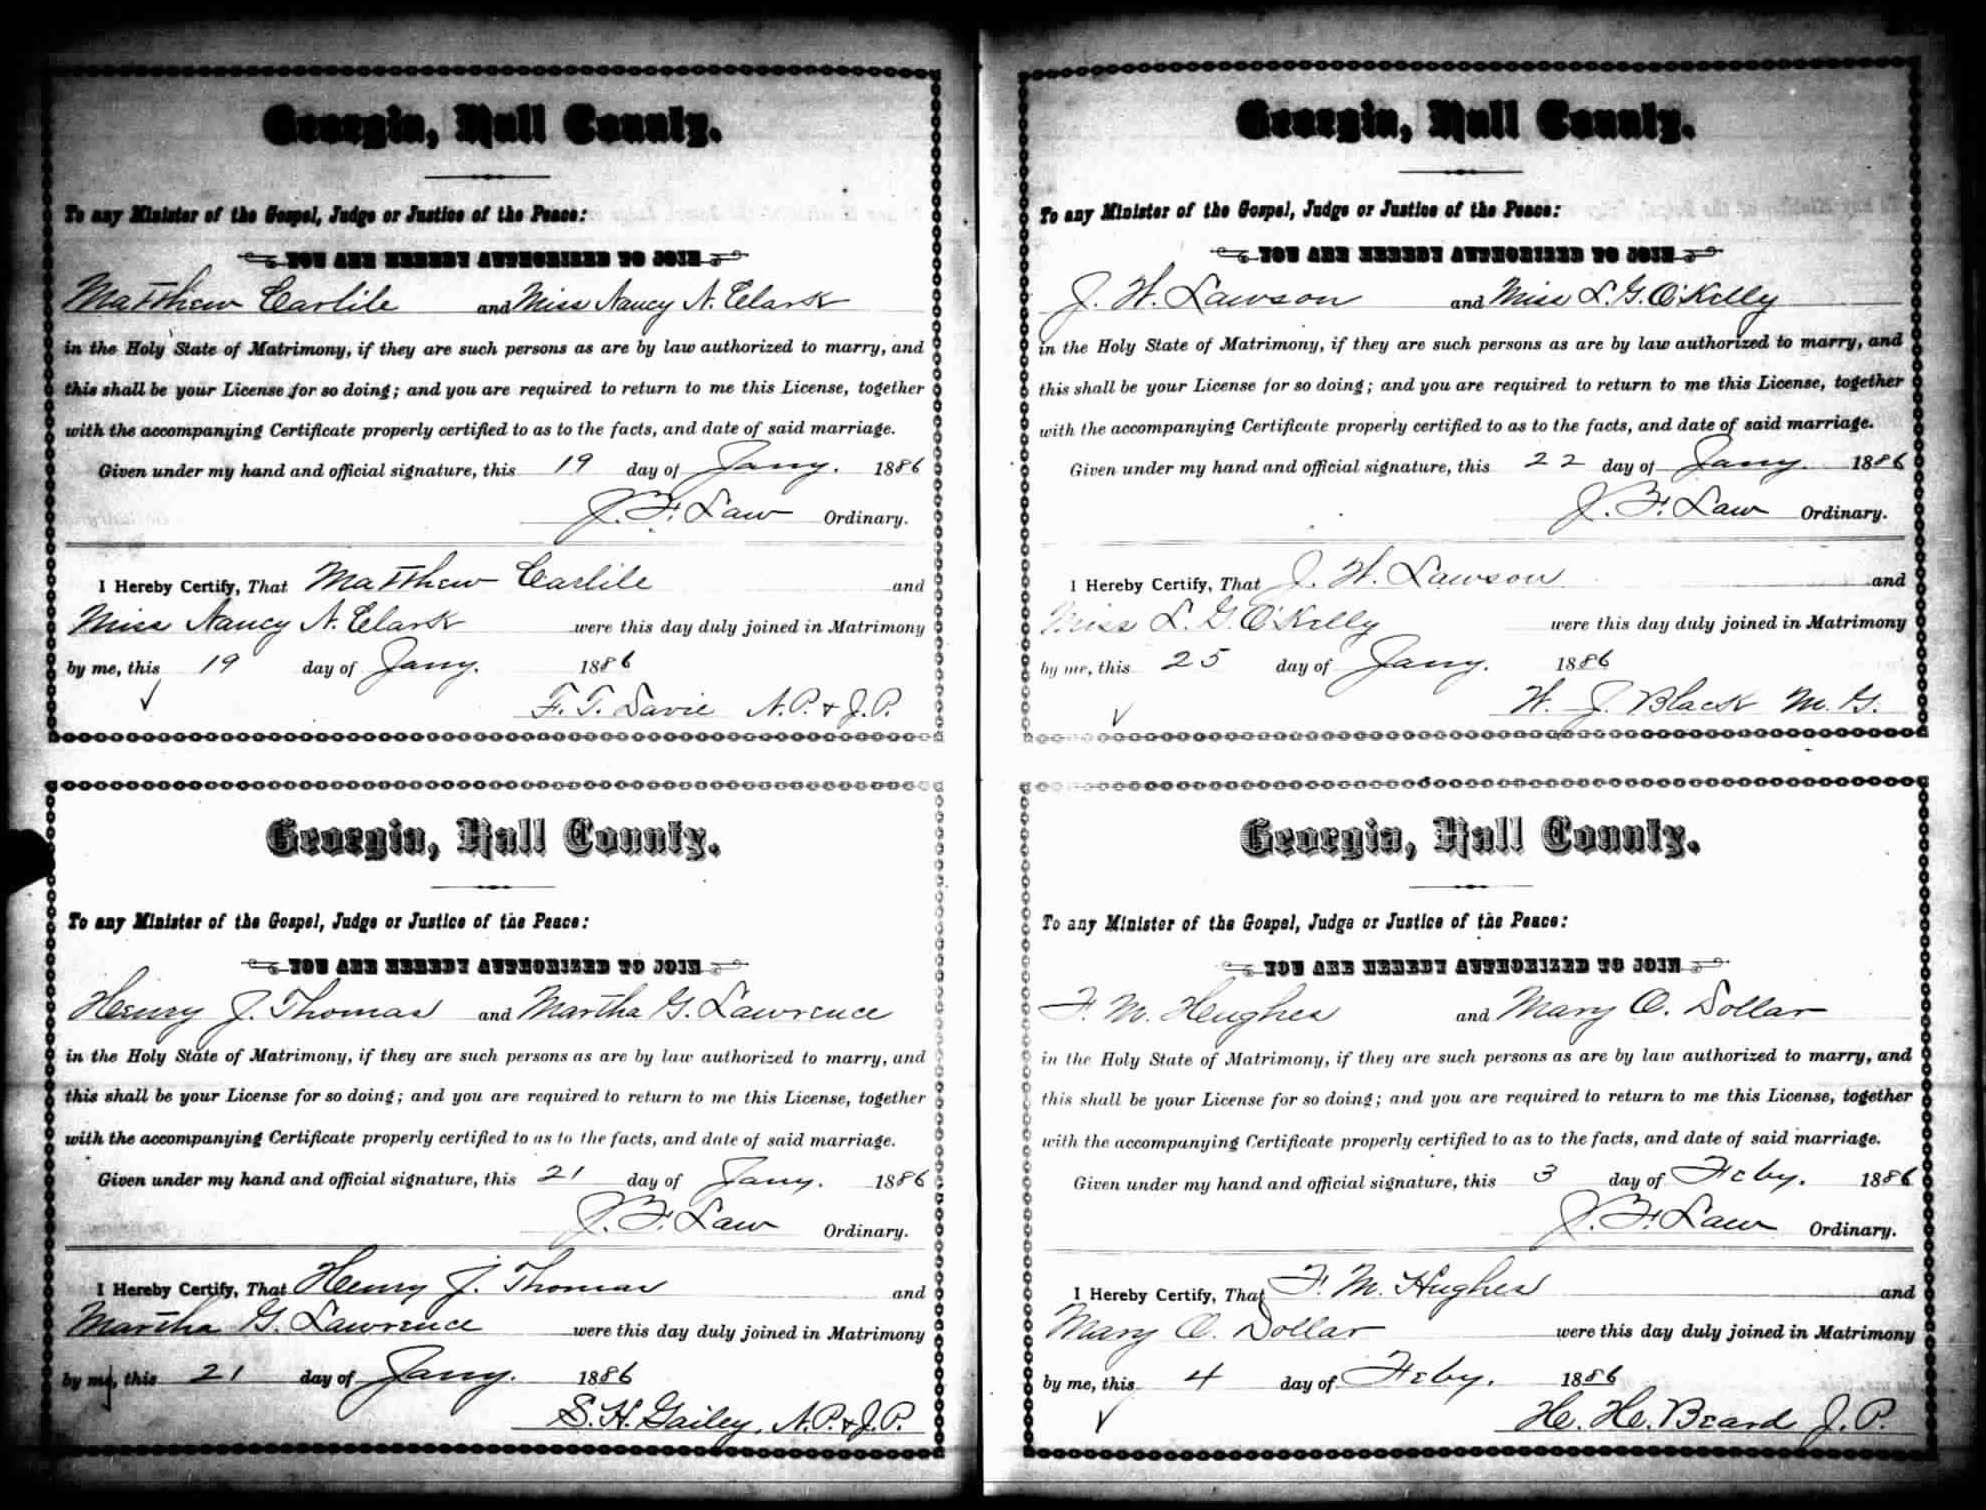 Georgia, Hall County.
To any Minister of the Gospel, Judge or Justice of the Peace:
YOU ARE HEREBY AUTHORIZED TO JOIN
Matthew Carlile and Miss Nancy N. Clark
in the Holy State of Matrimony, if they are such persons as are by law authorized to marry, and
this shall be your License for so doing; and you are required to return to me this License, together
with the accompanying Certificate properly certified to as to the facts, and date of said marriage.
Given under my hand and official signature, this 19 day of Jany. 1886
J. F. Law Ordinary.
I Hereby Certify, That Matthew Carlile and
Miss Nancy N. Clark were this day duly joined in Matrimony
by me, this 19 day of Jany. 1886
F. T. Davie N.P. & J.P.
Georgia, Hall County.
To any Minister of the Gospel, Judge or Justice of the Peace:
YOU ARE HEREBY AUTHORIZED TO JOIN
Henry J. Thomas and Martha G. Lawrence
in the Holy State of Matrimony, if they are such persons as are by law authorized to marry, and
this shall be your License for so doing; and you are required to return to me this License, together
with the accompanying Certificate properly certified to as to the facts, and date of said marriage.
Given under my hand and official signature, this 21 day of Jany. 1886
J. F. Law Ordinary.
I Hereby Certify, That Henry J. Thomas and
Martha G. Lawrence were this day duly joined in Matrimony
by me, this 21 day of Jany. 1886
S. H. Gailey, N.P. & J.P.
Georgia, Hall County.
To any Minister of the Gospel, Judge or Justice of the Peace:
YOU ARE HEREBY AUTHORIZED TO JOIN
J. W. Lawson and Miss L. G. O'Kelly
in the Holy State of Matrimony, if they are such persons as are by law authorized to marry, and
this shall be your License for so doing; and you are required to return to me this License, together
with the accompanying Certificate properly certified to as to the facts, and date of said marriage.
Given under my hand and official signature, this 22 day of Jany. 1886
J. F. Law Ordinary.
I Hereby Certify, That J. W. Lawson and
Miss L. G. O'Kelly were this day duly joined in Matrimony
by me, this 25 day of Jany. 1886
W. J. Black M. G.
Georgia, Hall County.
To any Minister of the Gospel, Judge or Justice of the Peace:
YOU ARE HEREBY AUTHORIZED TO JOIN
F. M. Hughes and Mary O. Dollar
in the Holy State of Matrimony, if they are such persons as are by law authorized to marry, and
this shall be your License for so doing; and you are required to return to me this License, together
with the accompanying Certificate properly certified to as to the facts, and date of said marriage.
Given under my hand and official signature, this 3 day of Feby. 1886
J. F. Law Ordinary.
I Hereby Certify, That F. M. Hughes and
Mary O. Dollar were this day duly joined in Matrimony
by me, this 4 day of Feby. 1886
H. H. Beard J. P.